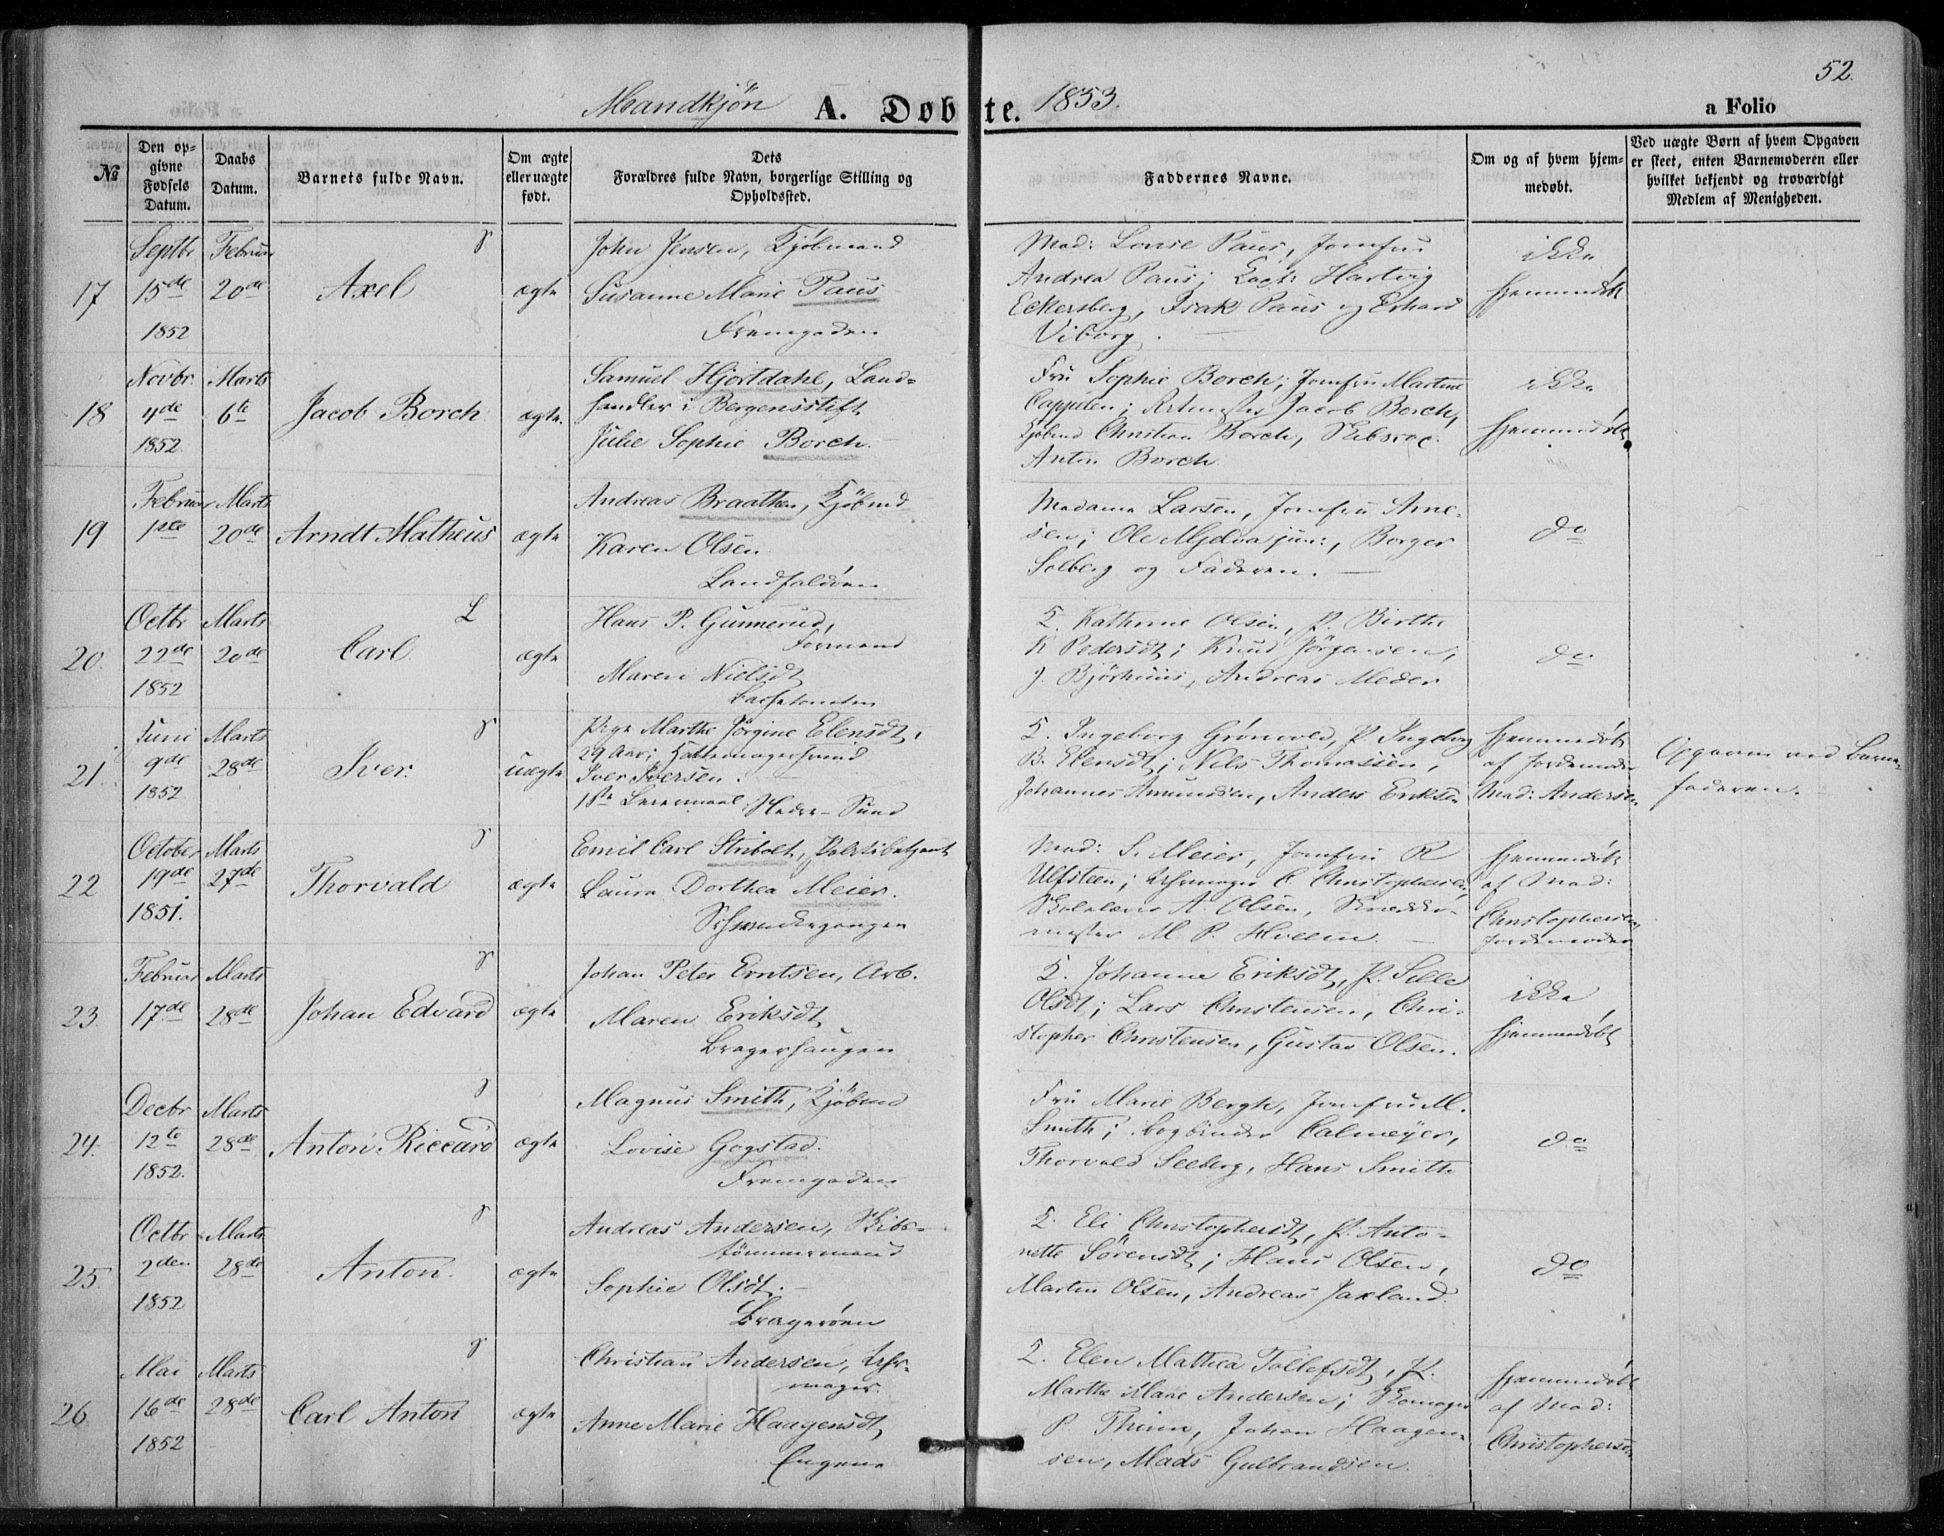 52.
Mandkjön A. Døbte. 1853. a Folio
№
Den opgivne Fødsels Datum.
Daabs Datum.
Barnets fulde Navn.
Om ægte eller uægte født.
Dets Forældres fulde Navn, borgerlige Stilling og Opholdssted.
Faddernes Navne.
Om og af hvem hjemmedøbt.
Ved uægte Børn af hvem Opgaven er skeet, enten Barnemoderen eller hvilket bekjendt og troværdigt Medlem af Menigheden.
17
Septbr 15de 1852
Februar 20de
Axel
ægte
John Jensen, Kjöbmand
Susanne Marie Paus
Fremgaden
Mad: Lovise Paus, Jomfru
Andrea Paus; Hartvig
Eckersberg, Isak Paus og Erhard
Viborg.
ikke
hjemmedöbt
18
Novbr. 4de 1852.
Marts 6te
Jacob Borch
ægte.
Samuel Hjortdahl, Land=
handler i Bergensstift
Julie Sophie Borch.
Fru Sophie Borch; Jomfru Martine
Cappelen; Jacob Borch,
Kjöbmd Christian Borch, Skibsrae.
Anton Borch
ikke
hjemmedöbt
19
Februar 1ste
Marts 20de
Arndt Matheus
ægte
Andreas Braathen, Kjöbmd
Karen Olsen
Landfaldöen
Madame Larsen, Jomfru Arne-
sen; Ole Mjelva jun:, Borger
Solberg og Faderen.
do
20.
Octbr 22de 1852
Marts 20de
L
Carl
ægte
Hans P. Gunnerud,
Formand
Maren Nielsdt
K. Kathrine Olsen, P. Birthe
K Pedersdt; Knud Jörgensen,
J. Björhuus, Andreas Meder
do
21.
Juni 9de 1852
Marts 28de
Iver.
uægte
Pige Marthe Jörgine Elensdt,
29 Aar; Hattemagersvend
Iver Iversen.
1ste Leiermaal Nedre-Sund
K. Ingeborg Grönvold, P. Ingeborg
B. Elensdt; Nils Thomassen,
Johannes Amundsen, Anders Eriksen
hjemmedöbt
af Jordemoder
Mad: Andersen
Opgaven ved Barne-
faderen.
22
October 19de 1851.
Marts 27de
Thorvald
ægte
Emil Carl Stribolt, Politibetjent
Laura Dorthea Meier.
Mad: S. Meier, Jomfru R
Ulfsteen; Uhrmager C. Christophersen,
A. Olsen, Snedker-
mester M P. Hveem.
hjemmedöbt
af Mad:
Christophersen,
Jordemoder
23.
Februar 17de
Marts 28de
Johan Edvard
ægte
Johan Peter Erntsen, Arb.
Maren Eriksdt
Bragerhaugen
K. Johanne Eriksdt, P. Sille
Olsdt; Lars Christensen, Chri-
stopher Christensen, Gustav Olsen.
ikke
hjemmedöbt
24.
Decbr 12te 1852.
Marts 28de
Anton Riccard
ægte
Magnus Smith, Kjöbmd
Lovise Gogstad.
Fremgaden
Fru Marie Bergh, Jomfru M.
Smith; Bogbinder Calmeyer,
Thorvald Seeberg, Hans Smith
do
25.
Octbr 2den 1852
Marts 28de
Anton.
ægte
Andreas Andersen, Skibs-
tömmermand
Sophie Olsdt.
Brageröen
K. Eli Christophersdt, P. Anto-
nette Sörensdt; Hans Olsen,
Martin Olsen, Andreas Jaxland.
do
26
Mai 16de 1852
Marts 28de
Carl Anton
ægte
Christian Andersen, Uhr-
mager.
Anne Marie Haagensdt
Engene
K. Elen Mathea Tollefsdt, P.
Marthe Marie Andersen; Skomager
P. Thim, Johan Haagen-
sen, Mads Gulbrandsen.
hjemmedöbt
af Mad:
Christophersen